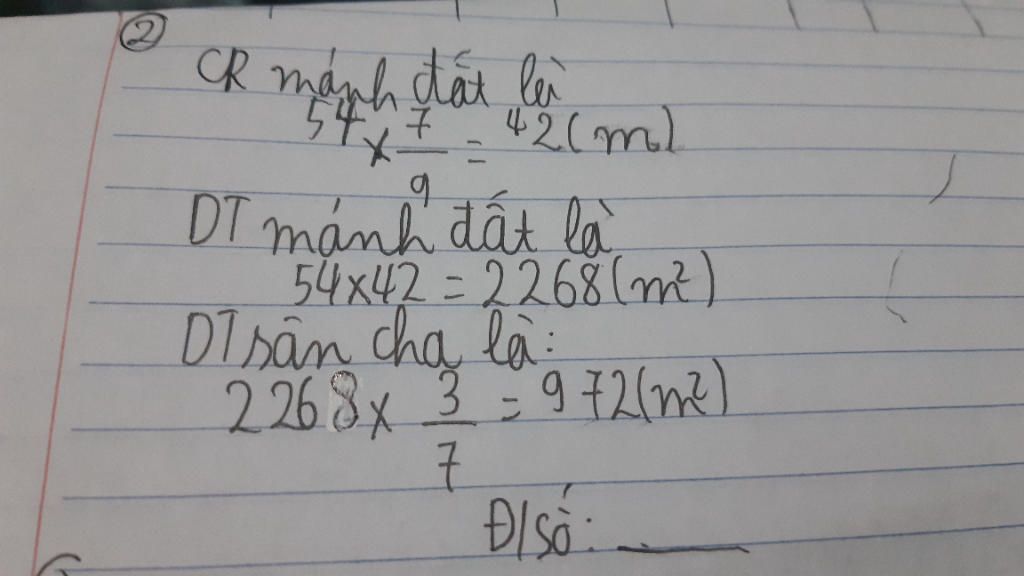 ②
CR mảnh đất là
54 × 7/9 = 42 (m)
DT mảnh đất là
54×42 = 2268 (m²)
DT sân cha là:
2268 × 3/7 = 972 (m²)
Đ/số: ____